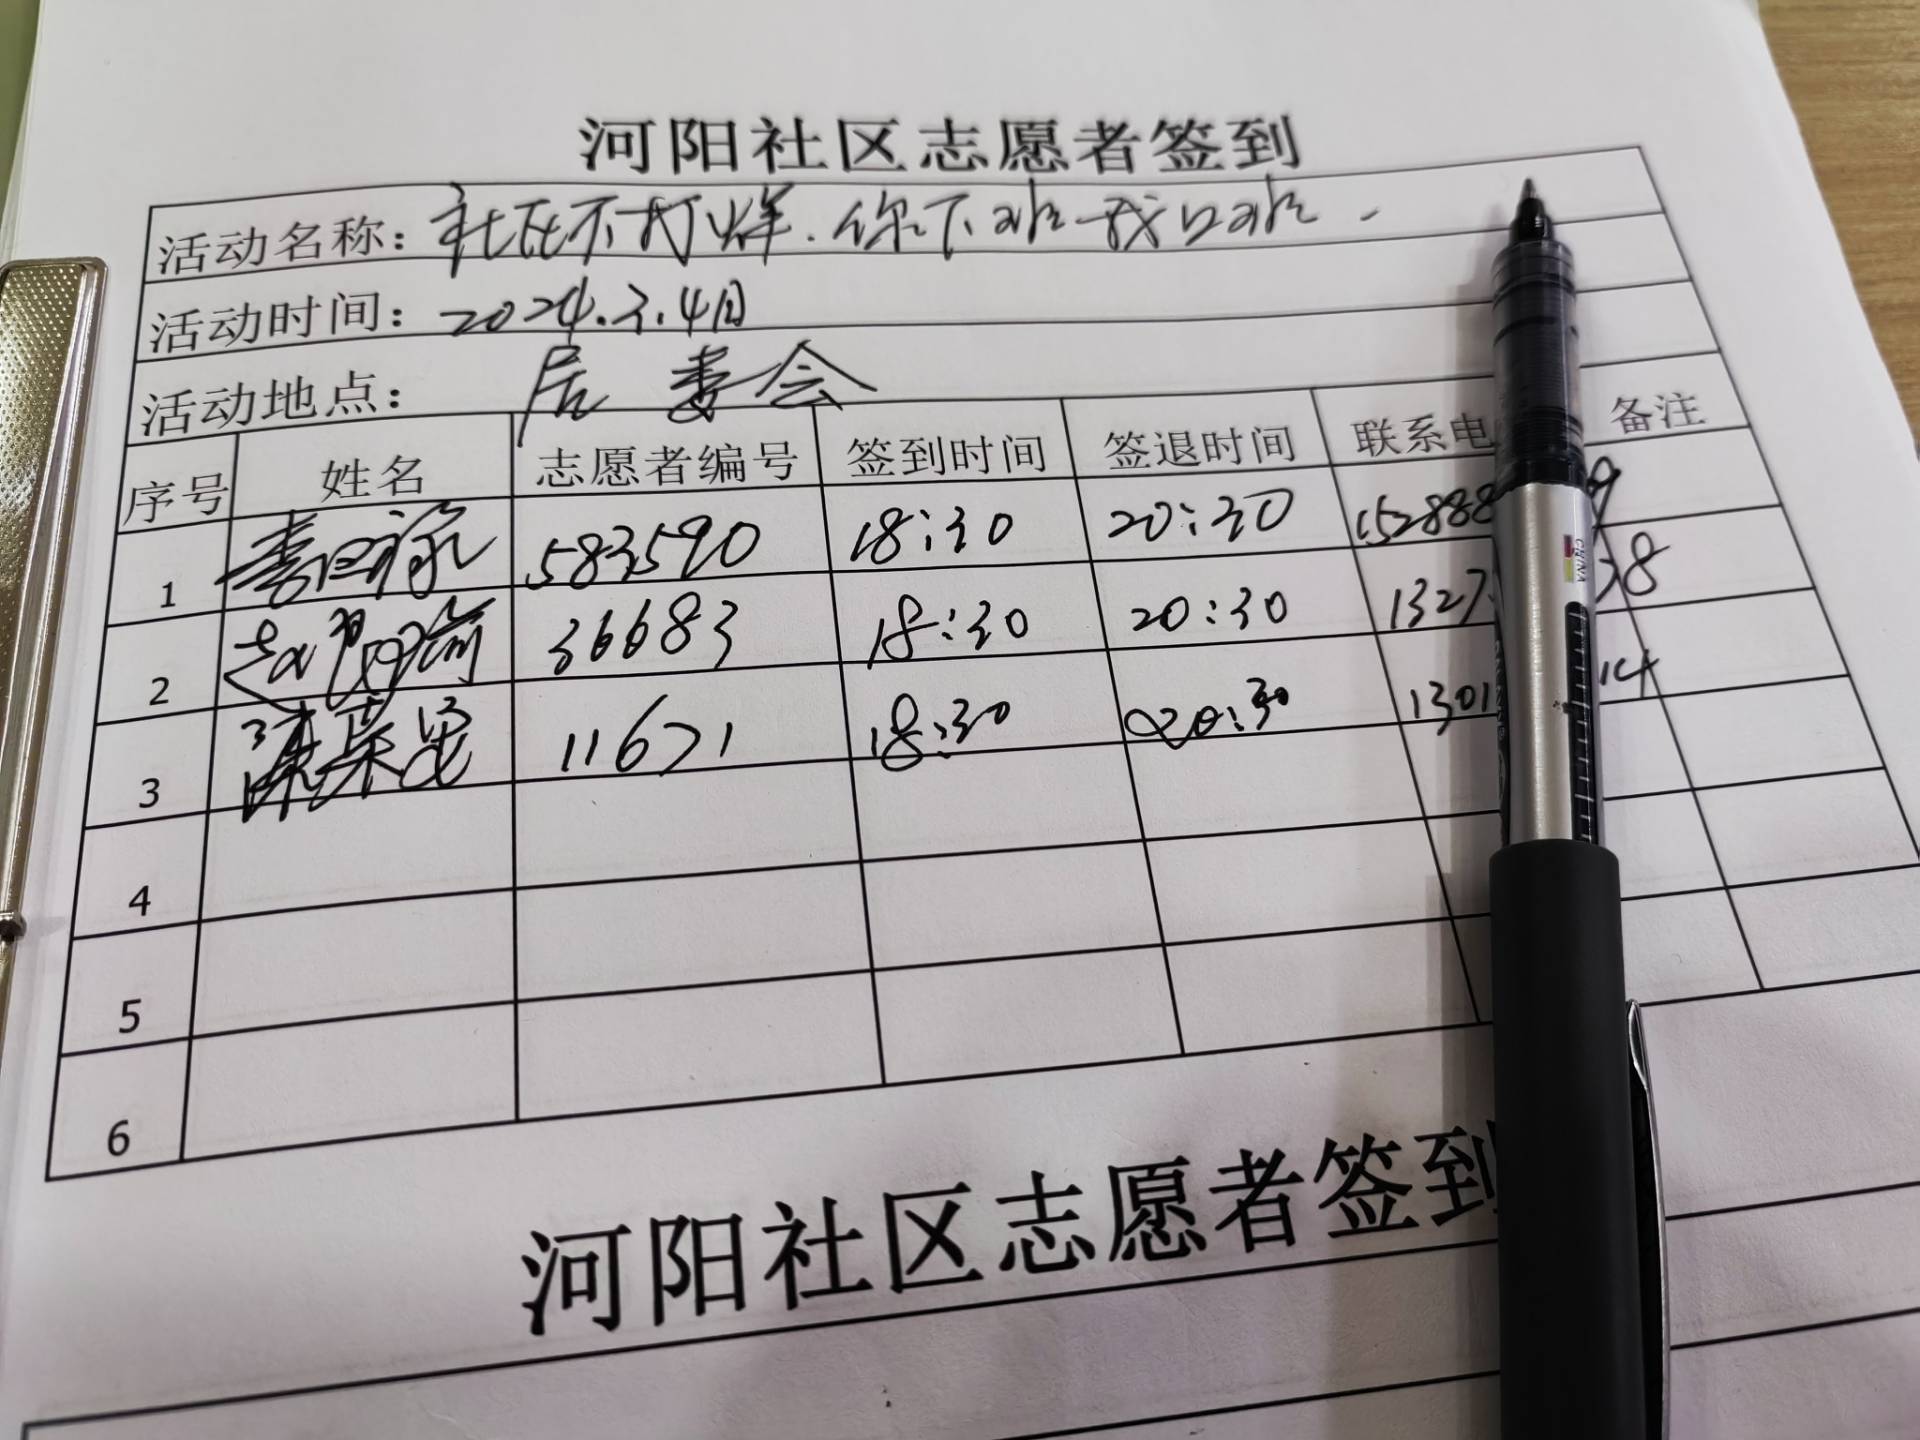 河阳社区志愿者签到
活动名称：社区不打烊.你下班我上班.
活动时间：2024.3.4日
活动地点：居委会
序号 姓名 志愿者编号 签到时间 签退时间 联系电 备注
1 583590 18:30 20:30 152888 9
2 36683 18:30 20:30 1327 38
3 11671 18:30 20:30 1301 14
4
5
6
河阳社区志愿者签到